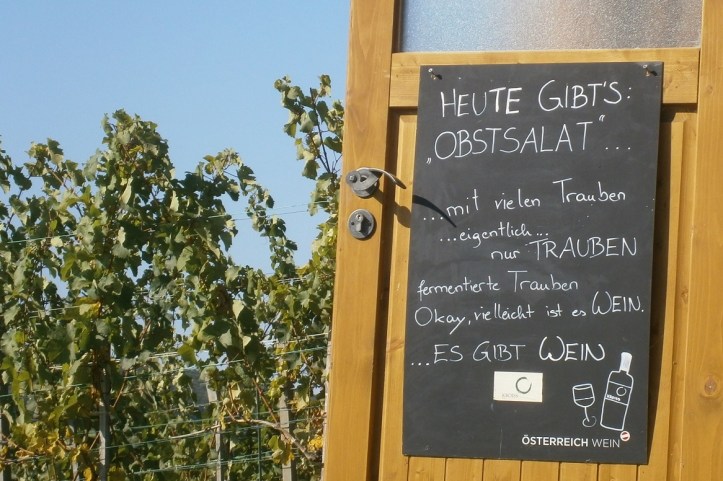 HEUTE GIBT'S:
„OBSTSALAT"...
...mit vielen Trauben
...eigentlich...
nur TRAUBEN
fermentierte Trauben
Okay, vielleicht ist es WEIN.
...ES GIBT WEIN
ÖSTERREICH WEIN